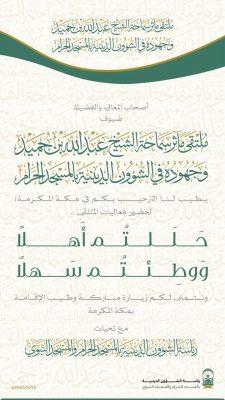 ملتقى مآثر سماحة الشيخ عبدالله بن حميد
وجهوده في الشؤون الدينية بالمسجد الحرام
أصحاب المعالي والفضيلة
ضيوف
ملتقى مآثر سماحة الشيخ عبدالله بن حميد
وجهوده في الشؤون الدينية بالمسجد الحرام
يطيب لنا الترحيب بكم في مكة المكرمة؛
لحضور فعاليات الملتقى ..
حللتم أهلاً
ووطئتم سهلاً
ونتمنى لكم زيارة مباركة وطيب الإقامة
بمكة المكرمة
مع تحيات
رئاسة الشؤون الدينية بالمسجد الحرام والمسجد النبوي
@PRAGOVSA
رئاسة الشؤون الدينية
بالمسجد الحرام والمسجد النبوي